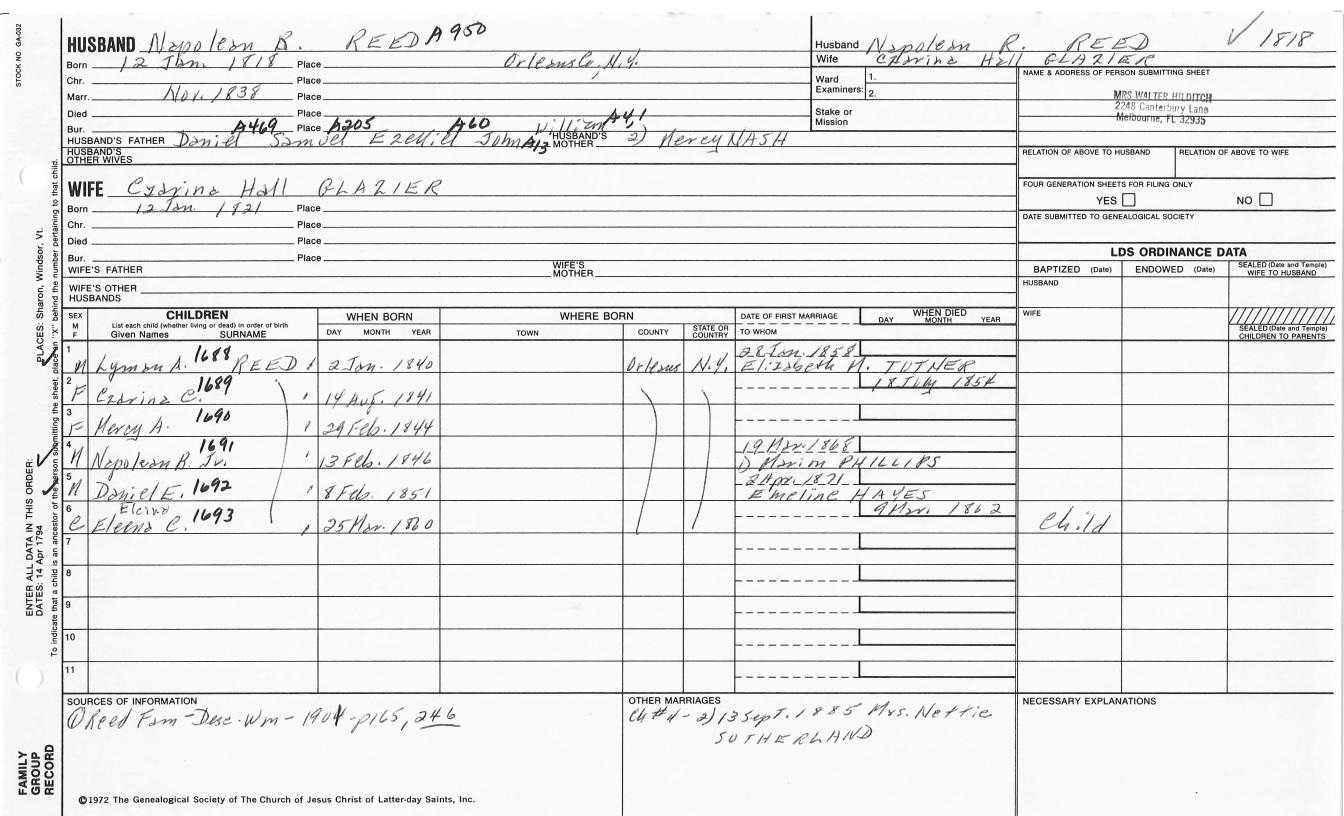 STOCK NO. GA-032
HUSBAND Napolean B. REED A950
Born 12 Jan. 1818 Place Orleans Co., N.Y.
Chr. Place
Marr. Nov. 1838 Place
Died Place
Bur. Place
A469 A205 A60 William A4,1
HUSBAND'S FATHER Daniel Samuel Ezekiel John A13 HUSBAND'S MOTHER 2) Mercy NASH
HUSBAND'S OTHER WIVES
WIFE Czarina Hall GLAZIER
Born 12 Jan. 1821 Place
Chr. Place
Died Place
Bur. Place
WIFE'S FATHER WIFE'S MOTHER
WIFE'S OTHER HUSBANDS
Husband Napolean R. REED ✓ 1818
Wife Czarina Hall GLAZIER
Ward Examiners: 1.
2.
Stake or Mission
NAME & ADDRESS OF PERSON SUBMITTING SHEET
MRS WALTER HILDITCH
2248 Canterbury Lane
Melbourne, FL 32935
RELATION OF ABOVE TO HUSBAND RELATION OF ABOVE TO WIFE
FOUR GENERATION SHEETS FOR FILING ONLY
YES NO
DATE SUBMITTED TO GENEALOGICAL SOCIETY
LDS ORDINANCE DATA
BAPTIZED (Date) ENDOWED (Date) SEALED (Date and Temple) WIFE TO HUSBAND
HUSBAND
WIFE
SEALED (Date and Temple) CHILDREN TO PARENTS
SEX M F
CHILDREN
List each child (whether living or dead) in order of birth
Given Names SURNAME
WHEN BORN
DAY MONTH YEAR
WHERE BORN
TOWN COUNTY STATE OR COUNTRY
DATE OF FIRST MARRIAGE
TO WHOM
WHEN DIED
DAY MONTH YEAR
1 M Lyman A. 1688 REED 2 Jan. 1840 Orleans N.Y. 28 Jan. 1858 Elizabeth M. TUTNER
2 F Czarina C. 1689 14 Aug. 1841 18 July 1854
3 F Mercy A. 1690 29 Feb. 1844
4 M Napolean B. Jr. 1691 13 Feb. 1846 19 Mar. 1868 1) Marion PHILLIPS
5 M Daniel E. 1692 8 Feb. 1851 2 Apr. 1871 Emeline HAYES
6 Elcina
Eleena C. 1693 25 Mar. 1860 9 Mar. 1862 Child
7
8
9
10
11
SOURCES OF INFORMATION
① Reed Fam - Desc. Wm - 1901 - p165, 246
OTHER MARRIAGES
Ch #4 - 2) 13 Sept. 1885 Mrs. Nettie
SUTHERLAND
NECESSARY EXPLANATIONS
©1972 The Genealogical Society of The Church of Jesus Christ of Latter-day Saints, Inc.
FAMILY GROUP RECORD
ENTER ALL DATA IN THIS ORDER:
DATES: 14 Apr 1794 PLACES: Sharon, Windsor, Vt.
To indicate that a child is an ancestor of the person submitting the sheet, place an "X" behind the number pertaining to that child.